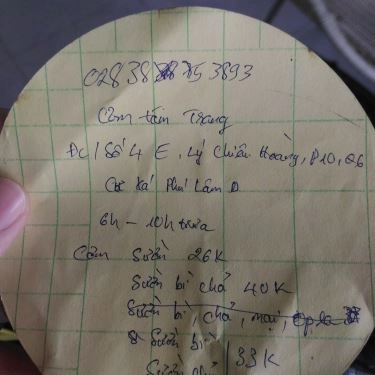 028 38 75 3893
Cơm tấm Trang
ĐC / Số 4 E, Lý Chiêu Hoàng, P10, Q6
Cư Xá Phú Lâm D
6h - 10h trưa
Cơm Sườn 26K
Sườn bì chả 40K
Sườn bì, chả, mại, ốp la
Sườn bì
Sườn chả 33K